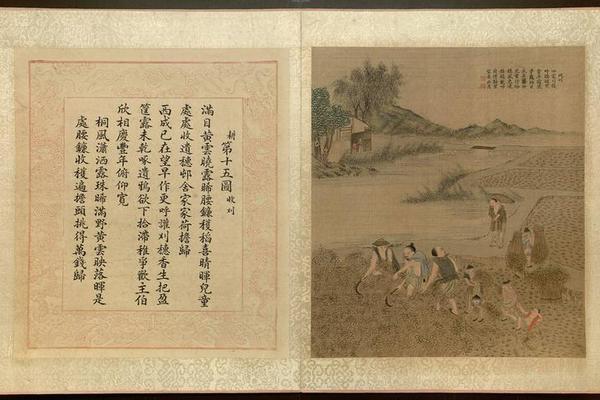 耕第十五圖 收刈
滿目黃雲曉露晞腰鐮穫稻喜晴暉兒童
處處收遺穗邨舍家家荷擔歸
西成已在望早作更呼讙刈穗香生把盈
筐露未乾啄遺鴉欲下拾滯稚爭歡主伯
欣相慶豐年俯仰寬
桐風瀟洒露珠晞滿野黃雲映落暉是
處腰鐮收穫遍擔頭挑得萬錢歸
收刈